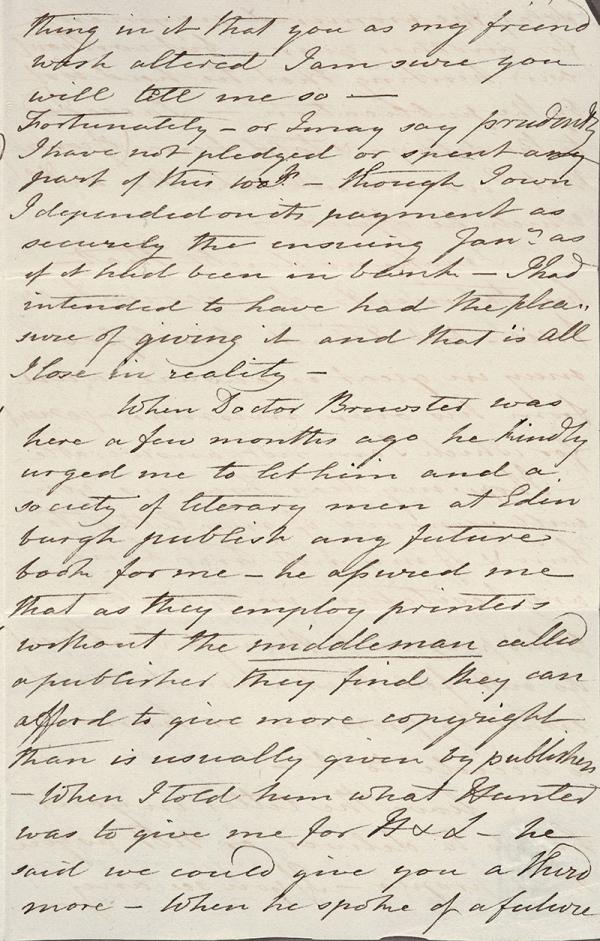 thing in it that you as my friend
wish altered I am sure you
will tell me so —
Fortunately – or I may say prudently
I have not pledged or spent any
part of this 100£ – though I own
I depended on its payment as
securely the ensuing Jany as
if it had been in bank – I had
intended to have had the plea„
sure of giving it and that is all
I lose in reality –
When Doctor Brewster was
here a few months ago he kindly
urged me to let him and a
society of literary men at Edin
burgh publish any future
book for me – he assured me
that as they employ printers
without the middleman called
a publisher they find they can
afford to give more copyright
than is usually given by publishers
– When I told him what Hunter
was to give me for H & L – he
said we could give you a third
more – When he spoke of a future